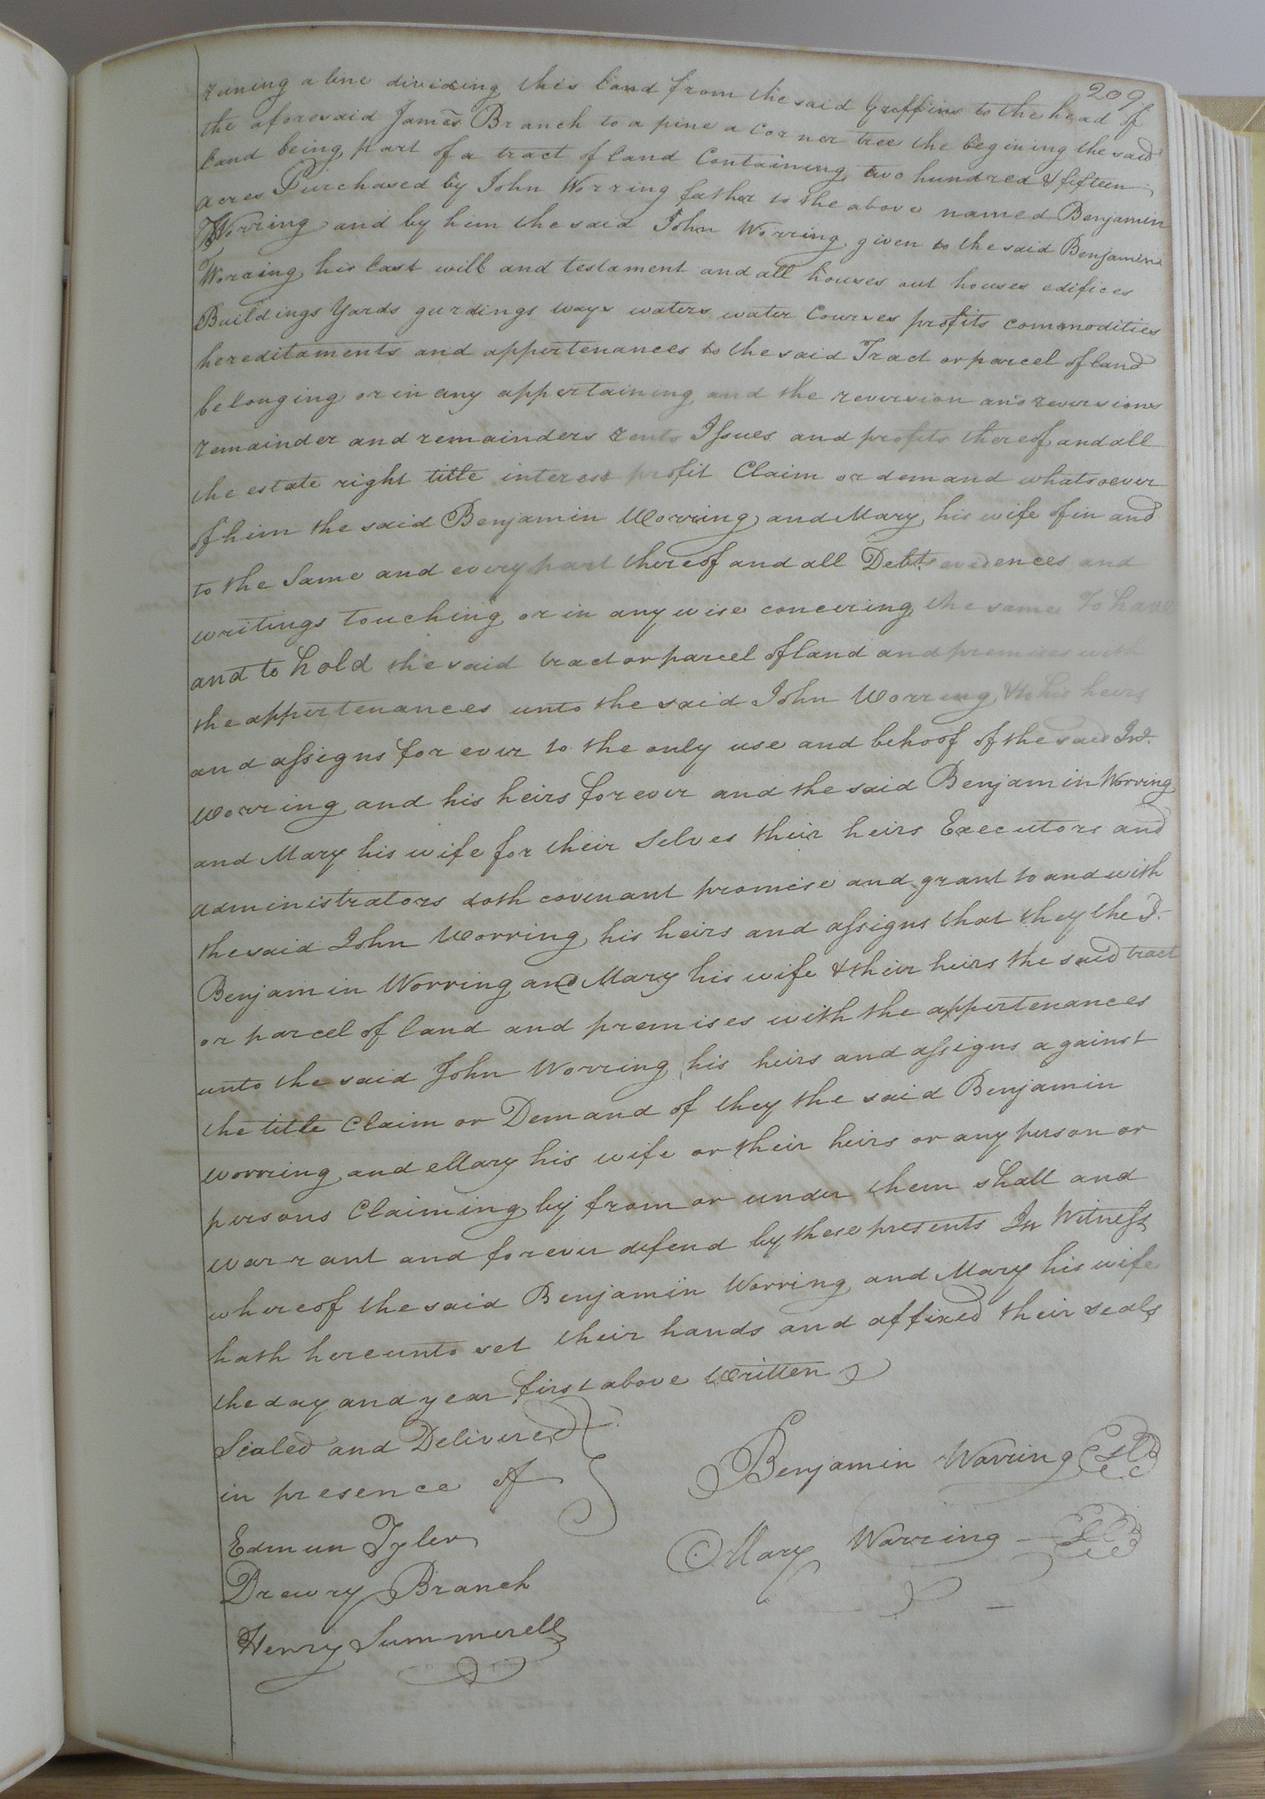 209
runing a line dividing this land from the said Griffins to the head of
the aforesaid James Branch to a pine a corner tree the begining the said
land being part of a tract of land Containing two hundred & fifteen
acres Purchased by John Worring father to the above named Benjamin
Worring and by him the said John Worring given to the said Benjamin
Worring his last will and testament and all houses out houses edifices
Buildings Yards gardings ways waters water Courses profits commodities
hereditaments and appertenances to the said Tract or parcel of land
belonging or in any appertaining and the reversion and reversions
remainder and remainders rents Issues and profits thereof and all
the estate right title interest profit Claim or demand whatsoever
of him the said Benjamin Worring and Mary his wife of in and
to the Same and every part thereof and all Debts evedences and
writings touching or in any wise concering the same To have
and to hold the said tract or parcel of land and premises with
the appertenances unto the said John Worring & to his heirs
and assigns for ever to the only use and behoof of the said Jno.
Worring and his heirs forever and the said Benjamin Worring
and Mary his wife for their Selves their heirs Executors and
administrators doth covenant promise and grant to and with
the said John Worring his heirs and assigns that they the Sd.
Benjamin Worring and Mary his wife & their heirs the said tract
or parcel of land and premises with the appertenances
unto the said John Worring his heirs and assigns against
the title Claim or Demand of they the said Benjamin
Worring and Mary his wife or their heirs or any person or
persons Claiming by from or under them shall and
warrant and forever defend by these presents In Witness
whereof the said Benjamin Worring and Mary his wife
hath hereunto set their hands and affixed their seals
the day and year first above written
Sealed and Delivered
in presence of
Benjamin Worring
Edmun Tyler
Mary Worring
Drewry Branch
Henry Summerell